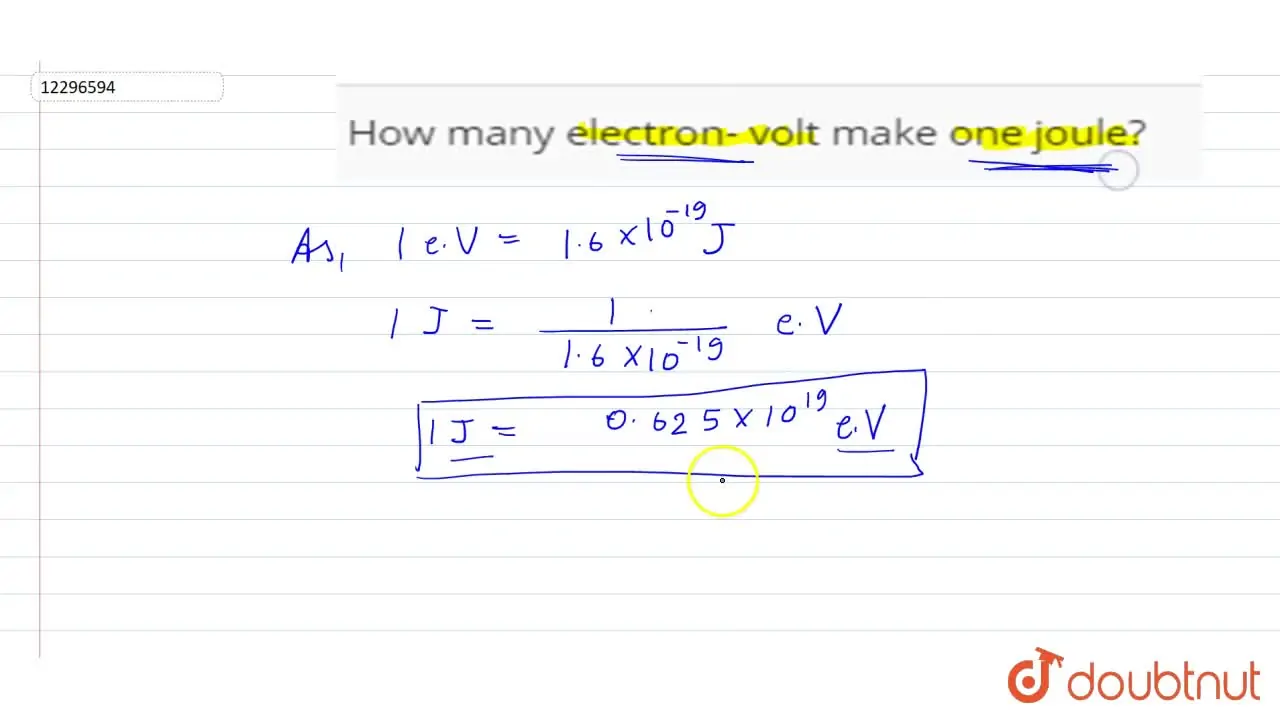 12296594
How many electron- volt make one joule?
As, 1 e.V = 1.6 × 10⁻¹⁹ J
1 J = 1 / 1.6 × 10⁻¹⁹ e.V
1 J = 0.625 × 10¹⁹ e.V
doubtnut